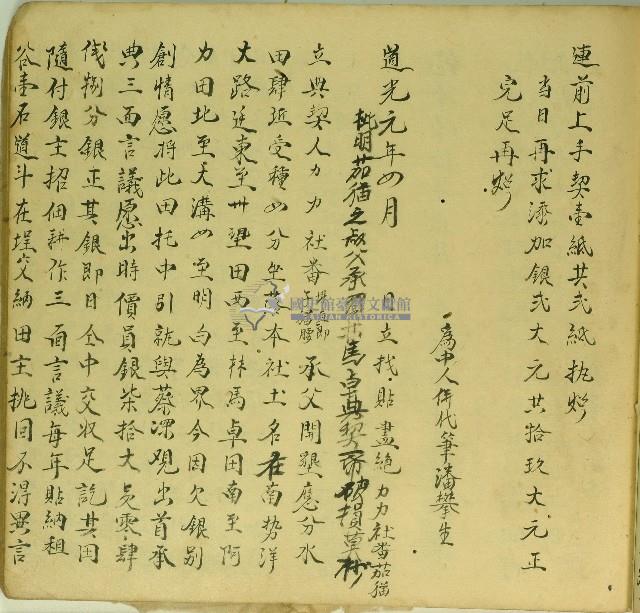 連前上手契壹紙共弍紙执炤
當日再求添加銀弍大元共拾玖大元正
完足再炤
為中人併代筆潘攀生
道光元年四月 日立找貼盡絕力力社番茄猫
批明茄猫之叔公承 馬卓典契 破損草抄
立典契人力力社番 承父開墾應分水
田肆坵受種 分坐落本社土名在南势洋
大路运東至 望田西至林馬卓田南至阿
力田地至天溝四至明白為界今因欠銀别
創情愿将此田托中引就與蔡深觀出首承
典三面言議愿出時價員銀柒拾大員零肆
錢捌分銀正其銀即日仝中交收足訖其田
隨付銀主招佃耕作三面言議每年貼納租
谷壹石道斗在埕交納田主挑回不得異言
國史館臺灣文獻館
TAIWAN HISTORICA